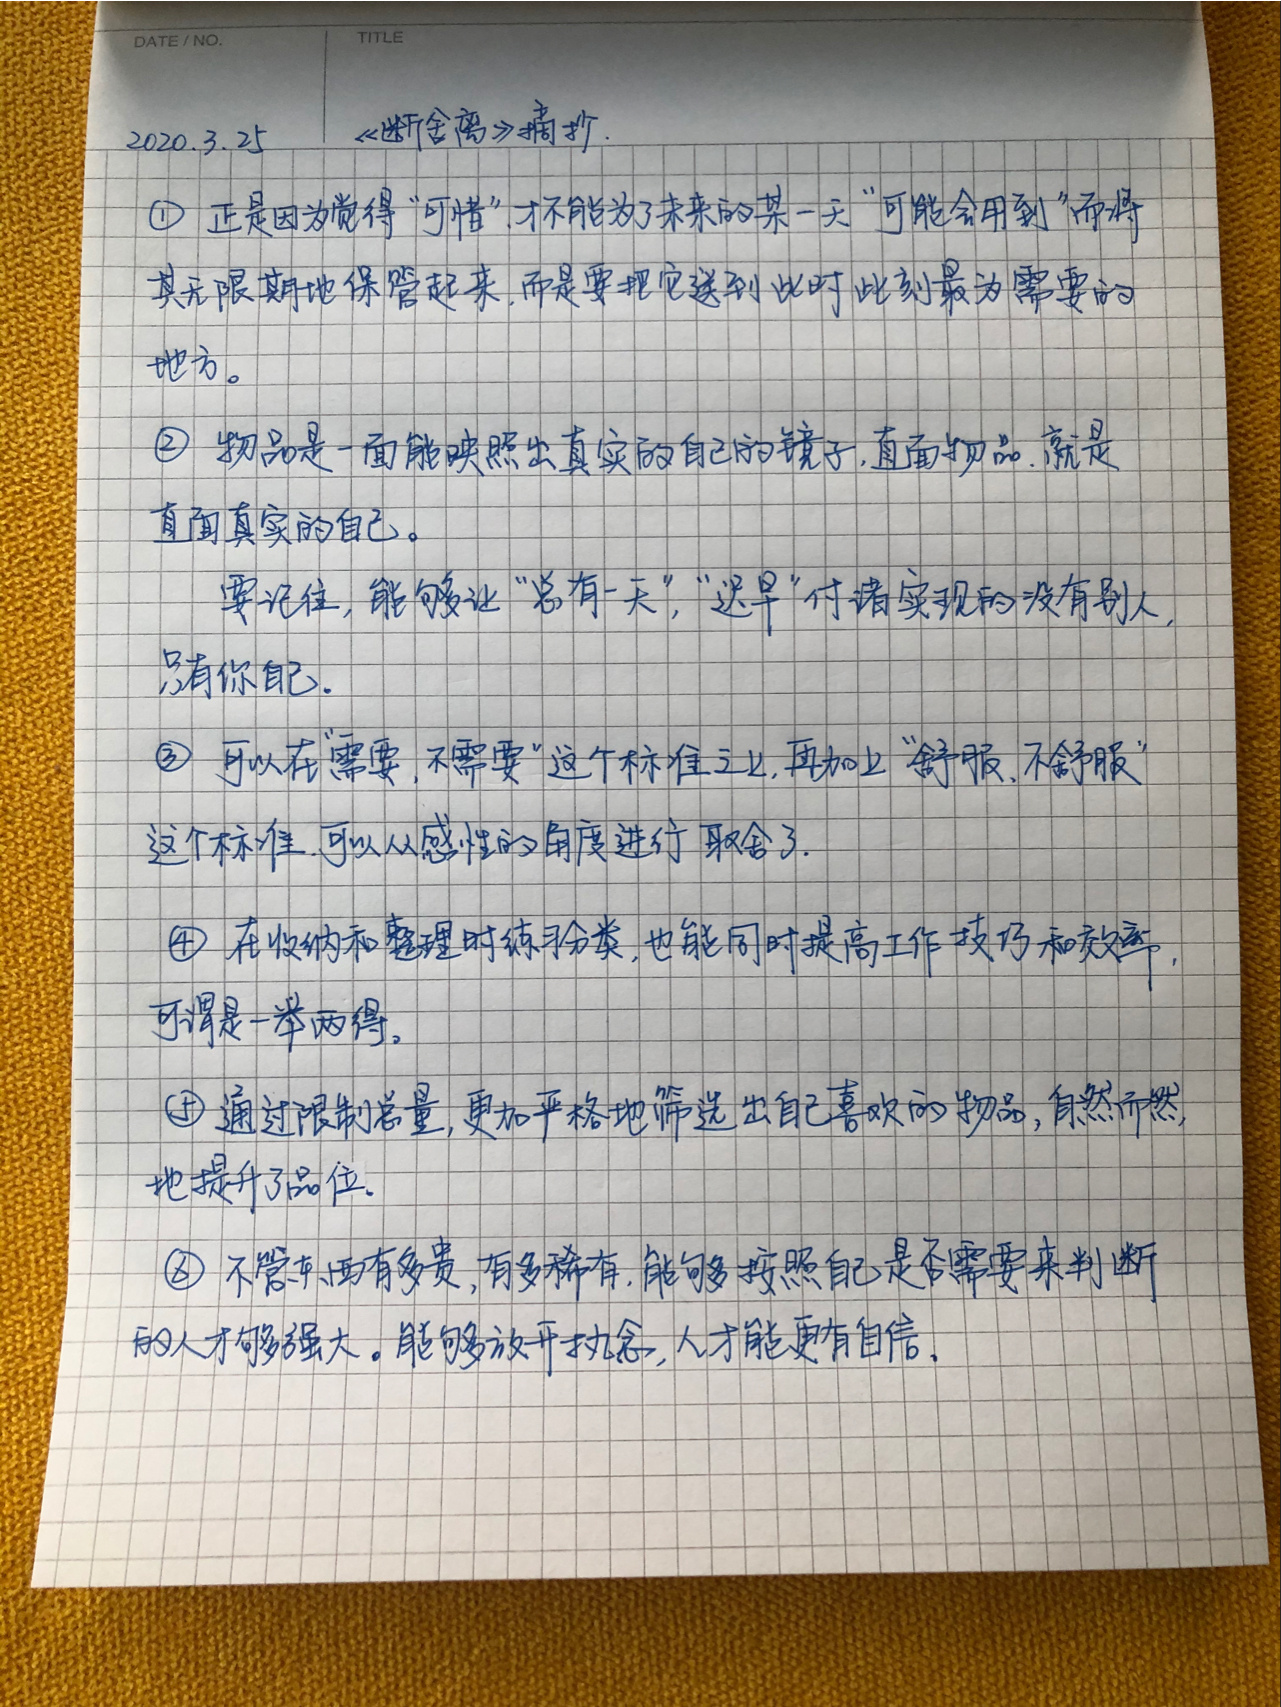 DATE / NO.
TITLE
2020.3.25
《断舍离》摘抄.
① 正是因为觉得“可惜”,才不能为了未来的某一天“可能会用到”而将
其无限期地保管起来,而是要把它送到此时此刻最为需要的
地方。
② 物品是一面能映照出真实的自己的镜子,直面物品,就是
直面真实的自己。
要记住,能够让“总有一天”,“迟早”付诸实现的没有别人,
只有你自己.
③ 可以在“需要,不需要”这个标准之上,再加上“舒服、不舒服”
这个标准,可以从感性的角度进行取舍了.
④ 在收纳和整理时练习分类,也能同时提高工作技巧和效率,
可谓是一举两得。
⑤ 通过限制总量,更加严格地筛选出自己喜欢的物品,自然而然,
地提升了品位。
⑥ 不管东西有多贵,有多稀有,能够按照自己是否需要来判断
的人才够强大。能够放开执念,人才能更有自信.